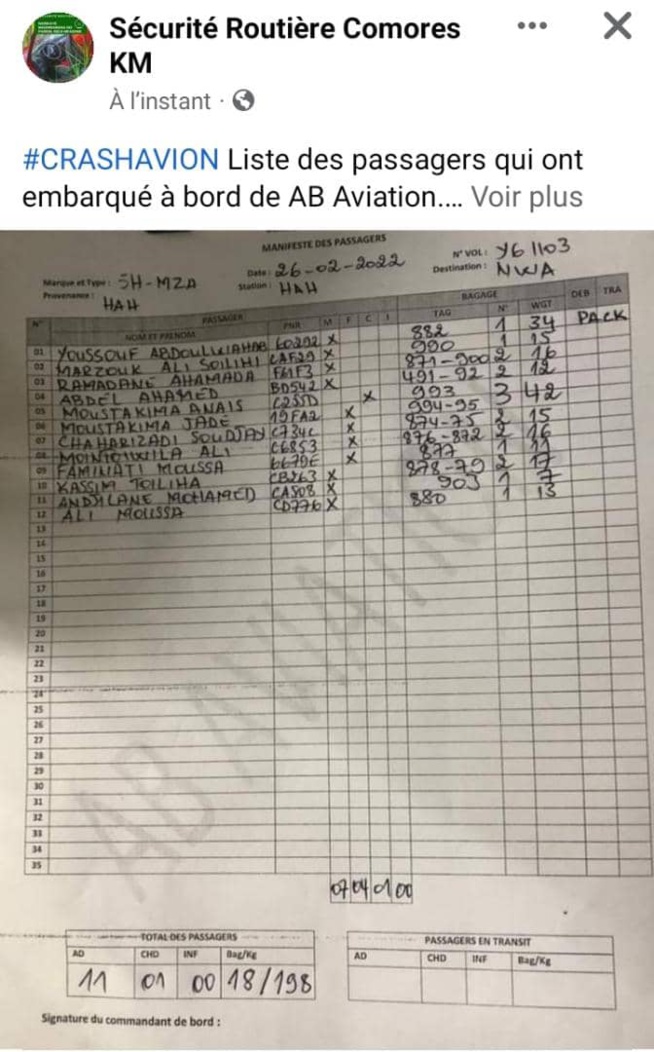 Sécurité Routière Comores
KM
À l'instant
#CRASHAVION Liste des passagers qui ont
embarqué à bord de AB Aviation.... Voir plus
MANIFESTE DES PASSAGERS
Marque et Type : 5H-MZA Date : 26-02-2022 N° VOL : Y61103
Provenance : HAH Station : HAH Destination : NWA
PASSAGER BAGAGE DEB TRA
N° NOM ET PRENOM PNR M F C I TAG N° WGT
01 YOUSSOUF 60292 X 882 1 34 PACK
02 MARZOUK ALI SOILIHI X 990 1 15
03 RAMADANE AHAMADA X 871-900 2 16
04 ABDEL AHAMED BD542 X 491-92 2 12
05 MOUSTAKIMA ANAIS X 993 3 42
06 MOUSTAKIMA JADE 19FA2 X 994-95
07 CHAHARIZADI SOUDJAY X 874-75 15
08 ALI C6853 X 876-872 16
09 FAMINATI MOUSSA X 877
10 KASSIM TOILIHA X 878-79 2 17
11 ANDJILANE MOHAMED CA508 X 903 1 7
12 ALI MOUSSA CD776 X 880 1 13
13
14
15
16
17
18
19
20
21
22
23
24
25
26
27
28
29
30
31
32
33
34
35
07 04 01 00
TOTAL DES PASSAGERS
AD CHD INF Bag/Kg
11 01 00 18/198
PASSAGERS EN TRANSIT
AD CHD INF Bag/Kg
Signature du commandant de bord :
AB AVIATION